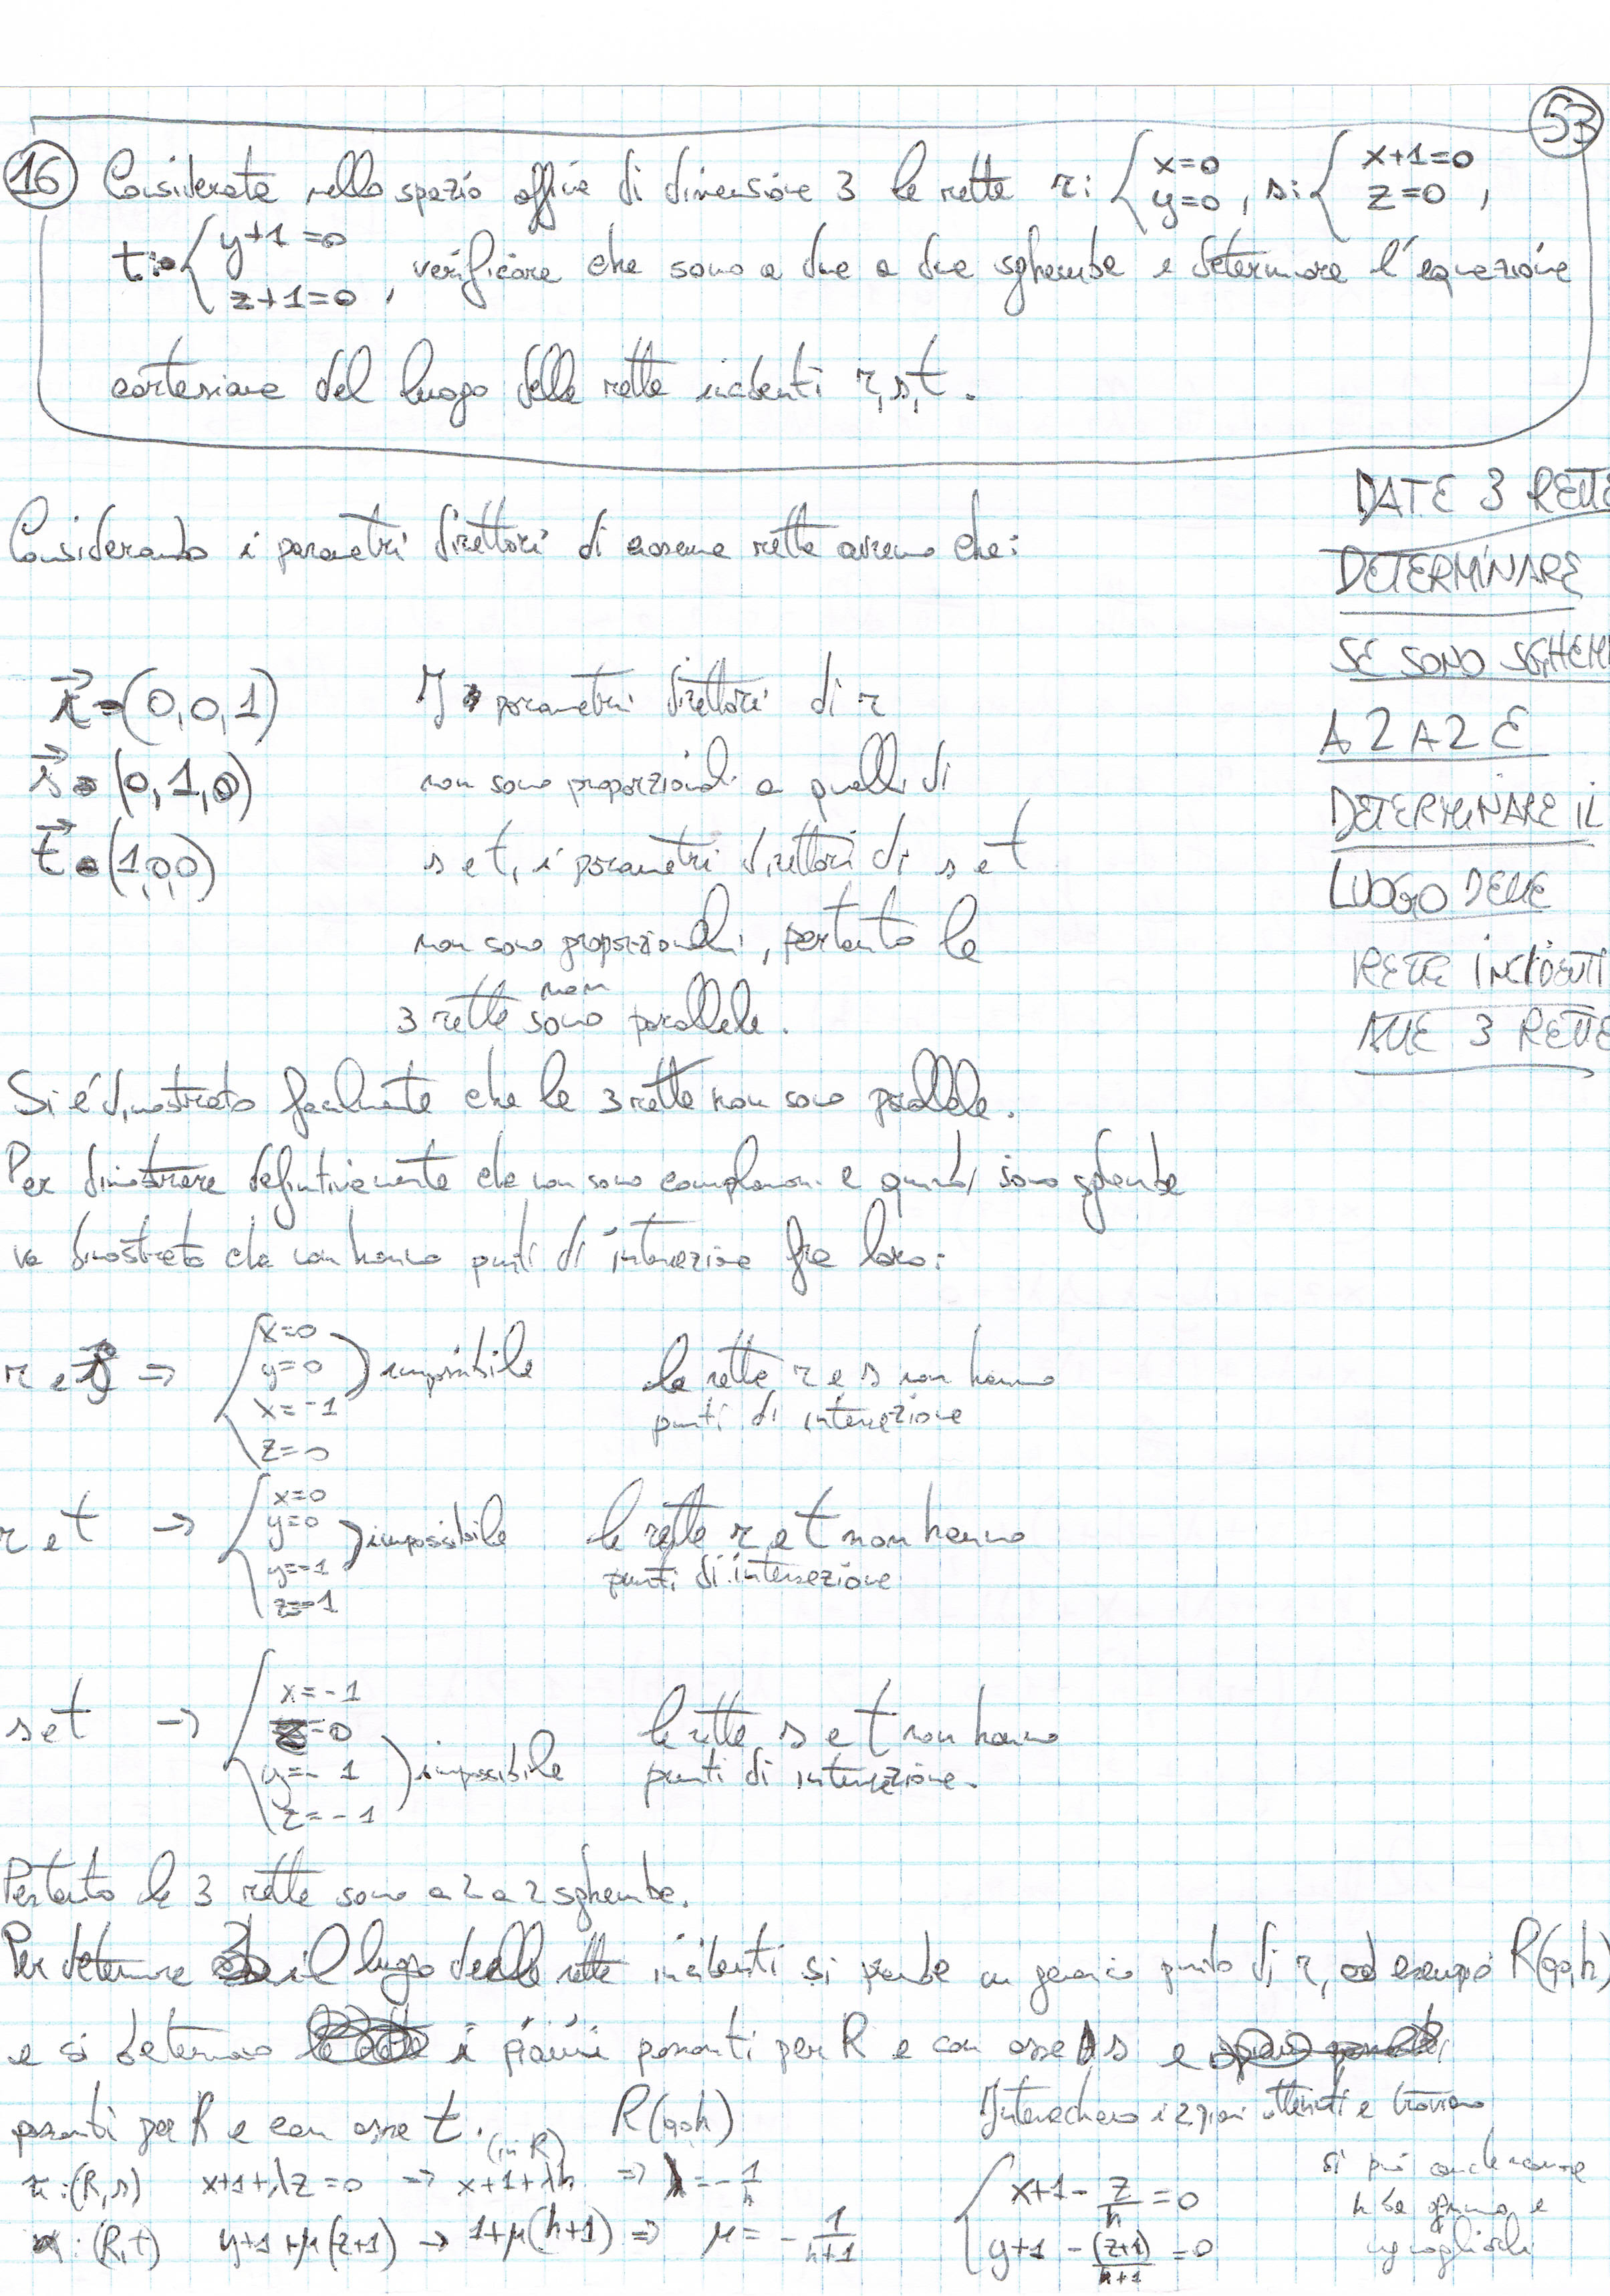 53
16 Considerate nello spazio affine di dimensione 3 le rette r: { x=0 y=0 , s: { x+1=0 z=0 ,
t: { y+1=0 z+1=0 , verificare che sono a due a due sghembe e determinare l'equazione
cartesiana del luogo delle rette incidenti r,s,t.
DATE 3 RETTE
DETERMINARE
SE SONO SGHEM
A 2 A 2 E
DETERMINARE IL
LUOGO DELLE
RETTE INCIDENTI
ALLE 3 RETTE
Considerando i parametri direttori di ciascuna retta avremo che:
r⃗=(0,0,1) I parametri direttori di r
s⃗=(0,1,0) non sono proporzionali a quelli di
t⃗=(1,0,0) s e t, i parametri direttori di s e t
non sono proporzionali, pertanto le
3 rette non sono parallele.
Si è dimostrato facilmente che le 3 rette non sono parallele.
Per dimostrare definitivamente che non sono complanari e quindi sono sghembe
va dimostrato che non hanno punti di intersezione fra loro:
r e s ⇒ { x=0 y=0 x=-1 z=0 ) impossibile le rette r e s non hanno
punti di intersezione
r e t → { x=0 y=0 y=-1 z=-1 ) impossibile le rette r e t non hanno
punti di intersezione
s e t → { x=-1 z=0 y=-1 z=-1 ) impossibile le rette s e t non hanno
punti di intersezione.
Pertanto le 3 rette sono a 2 a 2 sghembe.
Per determinare il luogo delle rette incidenti si prende un generico punto di r, ad esempio R(0,0,h)
e si determinano i piani passanti per R e con asse s e
passanti per R e con asse t. R(0,0,h) Intersechiamo i 2 piani ottenuti e troviamo
(in R)
π:(R,s) x+1+λz=0 ⇒ x+1+λh ⇒ λ=-1/h { x+1-z/h=0 si può
(R,t) y+1+μ(z+1) → 1+μ(h+1) ⇒ μ=-1/(h+1) y+1-(z+1)/(h+1)=0 h e